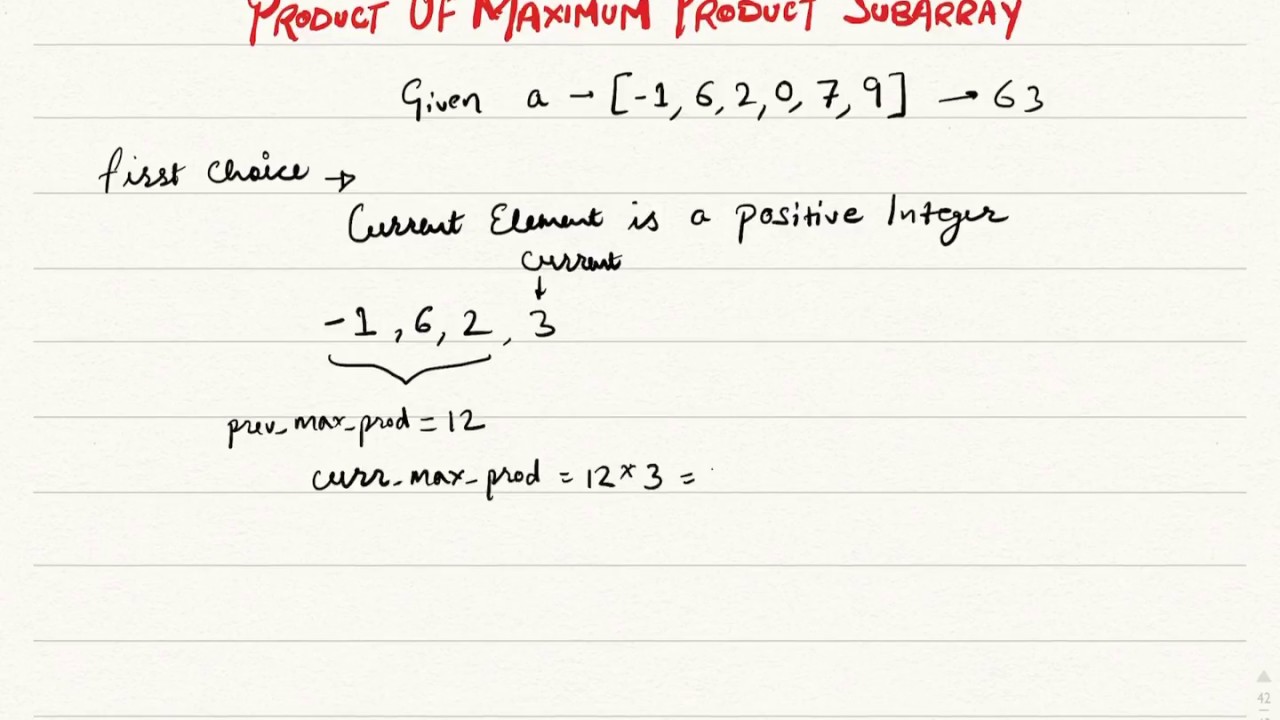 PRODUCT OF MAXIMUM PRODUCT SUBARRAY
Given a → [-1, 6, 2, 0, 7, 9] → 63
first choice →
Current Element is a positive Integer
current
↓
-1, 6, 2, 3
prev_max_prod = 12
curr_max_prod = 12 × 3 =
42